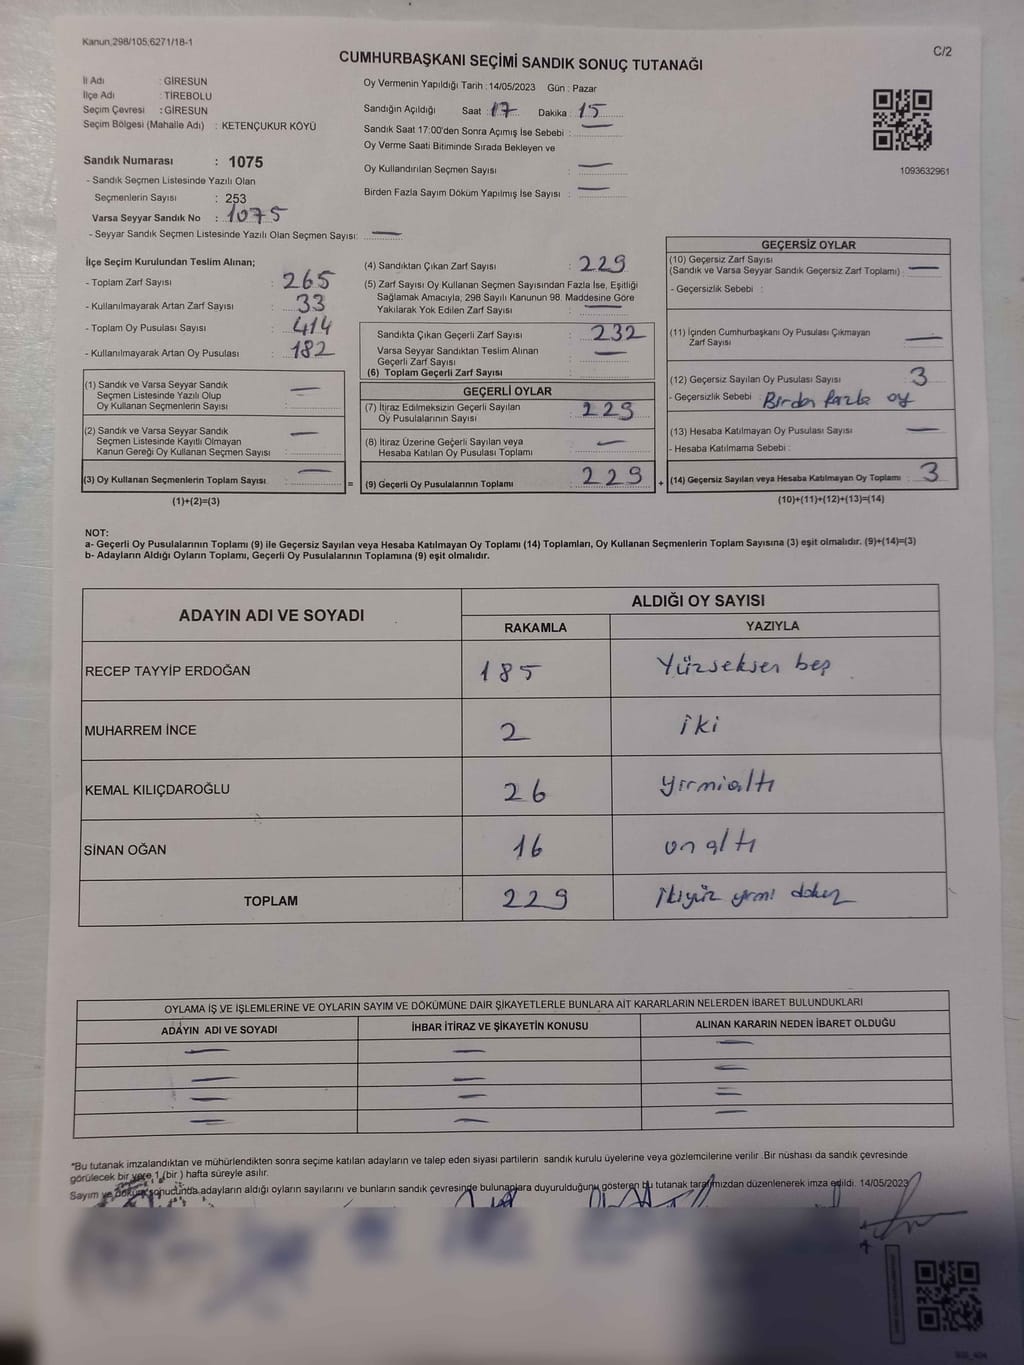 Kanun,298/105,6271/18-1
C/2
CUMHURBAŞKANI SEÇİMİ SANDIK SONUÇ TUTANAĞI
İl Adı : GİRESUN
İlçe Adı : TİREBOLU
Seçim Çevresi : GİRESUN
Seçim Bölgesi (Mahalle Adı) : KETENÇUKUR KÖYÜ
Sandık Numarası : 1075
- Sandık Seçmen Listesinde Yazılı Olan
Seçmenlerin Sayısı : 253
Varsa Seyyar Sandık No : 1075
- Seyyar Sandık Seçmen Listesinde Yazılı Olan Seçmen Sayısı: —
Oy Vermenin Yapıldığı Tarih : 14/05/2023 Gün : Pazar
Sandığın Açıldığı Saat : 17 Dakika : 15
Sandık Saat 17:00'den Sonra Açımış İse Sebebi : —
Oy Verme Saati Bitiminde Sırada Bekleyen ve
Oy Kullandırılan Seçmen Sayısı : —
Birden Fazla Sayım Döküm Yapılmış İse Sayısı : —
1093632961
İlçe Seçim Kurulundan Teslim Alınan;
- Toplam Zarf Sayısı : 265
- Kullanılmayarak Artan Zarf Sayısı : 33
- Toplam Oy Pusulası Sayısı : 414
- Kullanılmayarak Artan Oy Pusulası : 182
(1) Sandık ve Varsa Seyyar Sandık
Seçmen Listesinde Yazılı Olup
Oy Kullanan Seçmenlerin Sayısı : —
(2) Sandık ve Varsa Seyyar Sandık
Seçmen Listesinde Kayıtlı Olmayan
Kanun Gereği Oy Kullanan Seçmen Sayısı : —
(3) Oy Kullanan Seçmenlerin Toplam Sayısı : —
(1)+(2)=(3)
(4) Sandıktan Çıkan Zarf Sayısı : 229
(5) Zarf Sayısı Oy Kullanan Seçmen Sayısından Fazla İse, Eşitliği
Sağlamak Amacıyla, 298 Sayılı Kanunun 98. Maddesine Göre
Yakılarak Yok Edilen Zarf Sayısı : —
Sandıkta Çıkan Geçerli Zarf Sayısı : 232
Varsa Seyyar Sandıktan Teslim Alınan
Geçerli Zarf Sayısı : —
(6) Toplam Geçerli Zarf Sayısı
GEÇERLİ OYLAR
(7) İtiraz Edilmeksizin Geçerli Sayılan
Oy Pusulalarının Sayısı : 229
(8) İtiraz Üzerine Geçerli Sayılan veya
Hesaba Katılan Oy Pusulası Toplamı : —
= (9) Geçerli Oy Pusulalarının Toplamı : 229 +
GEÇERSİZ OYLAR
(10) Geçersiz Zarf Sayısı
(Sandık ve Varsa Seyyar Sandık Geçersiz Zarf Toplamı) : —
- Geçersizlik Sebebi :
(11) İçinden Cumhurbaşkanı Oy Pusulası Çıkmayan
Zarf Sayısı : —
(12) Geçersiz Sayılan Oy Pusulası Sayısı : 3
- Geçersizlik Sebebi : Birden fazla oy
(13) Hesaba Katılmayan Oy Pusulası Sayısı : —
- Hesaba Katılmama Sebebi :
(14) Geçersiz Sayılan veya Hesaba Katılmayan Oy Toplamı : 3
(10)+(11)+(12)+(13)=(14)
NOT:
a- Geçerli Oy Pusulalarının Toplamı (9) ile Geçersiz Sayılan veya Hesaba Katılmayan Oy Toplamı (14) Toplamları, Oy Kullanan Seçmenlerin Toplam Sayısına (3) eşit olmalıdır. (9)+(14)=(3)
b- Adayların Aldığı Oyların Toplamı, Geçerli Oy Pusulalarının Toplamına (9) eşit olmalıdır.
ADAYIN ADI VE SOYADI ALDIĞI OY SAYISI
RAKAMLA YAZIYLA
RECEP TAYYİP ERDOĞAN 185 Yüzseksen beş
MUHARREM İNCE 2 iki
KEMAL KILIÇDAROĞLU 26 yirmialtı
SİNAN OĞAN 16 on altı
TOPLAM 229 ikiyüz yirmi dokuz
OYLAMA İŞ VE İŞLEMLERİNE VE OYLARIN SAYIM VE DÖKÜMÜNE DAİR ŞİKAYETLERLE BUNLARA AİT KARARLARIN NELERDEN İBARET BULUNDUKLARI
ADAYIN ADI VE SOYADI İHBAR İTİRAZ VE ŞİKAYETİN KONUSU ALINAN KARARIN NEDEN İBARET OLDUĞU
— — —
— — —
— — —
— — —
*Bu tutanak imzalandıktan ve mühürlendikten sonra seçime katılan adayların ve talep eden siyasi partilerin sandık kurulu üyelerine veya gözlemcilerine verilir. Bir nüshası da sandık çevresinde
görülecek bir yere 1 (bir ) hafta süreyle asılır.
Sayım ve döküm sonucunda adayların aldığı oyların sayılarını ve bunların sandık çevresinde bulunanlara duyurulduğunu gösteren bu tutanak tarafımızdan düzenlenerek imza edildi. 14/05/2023